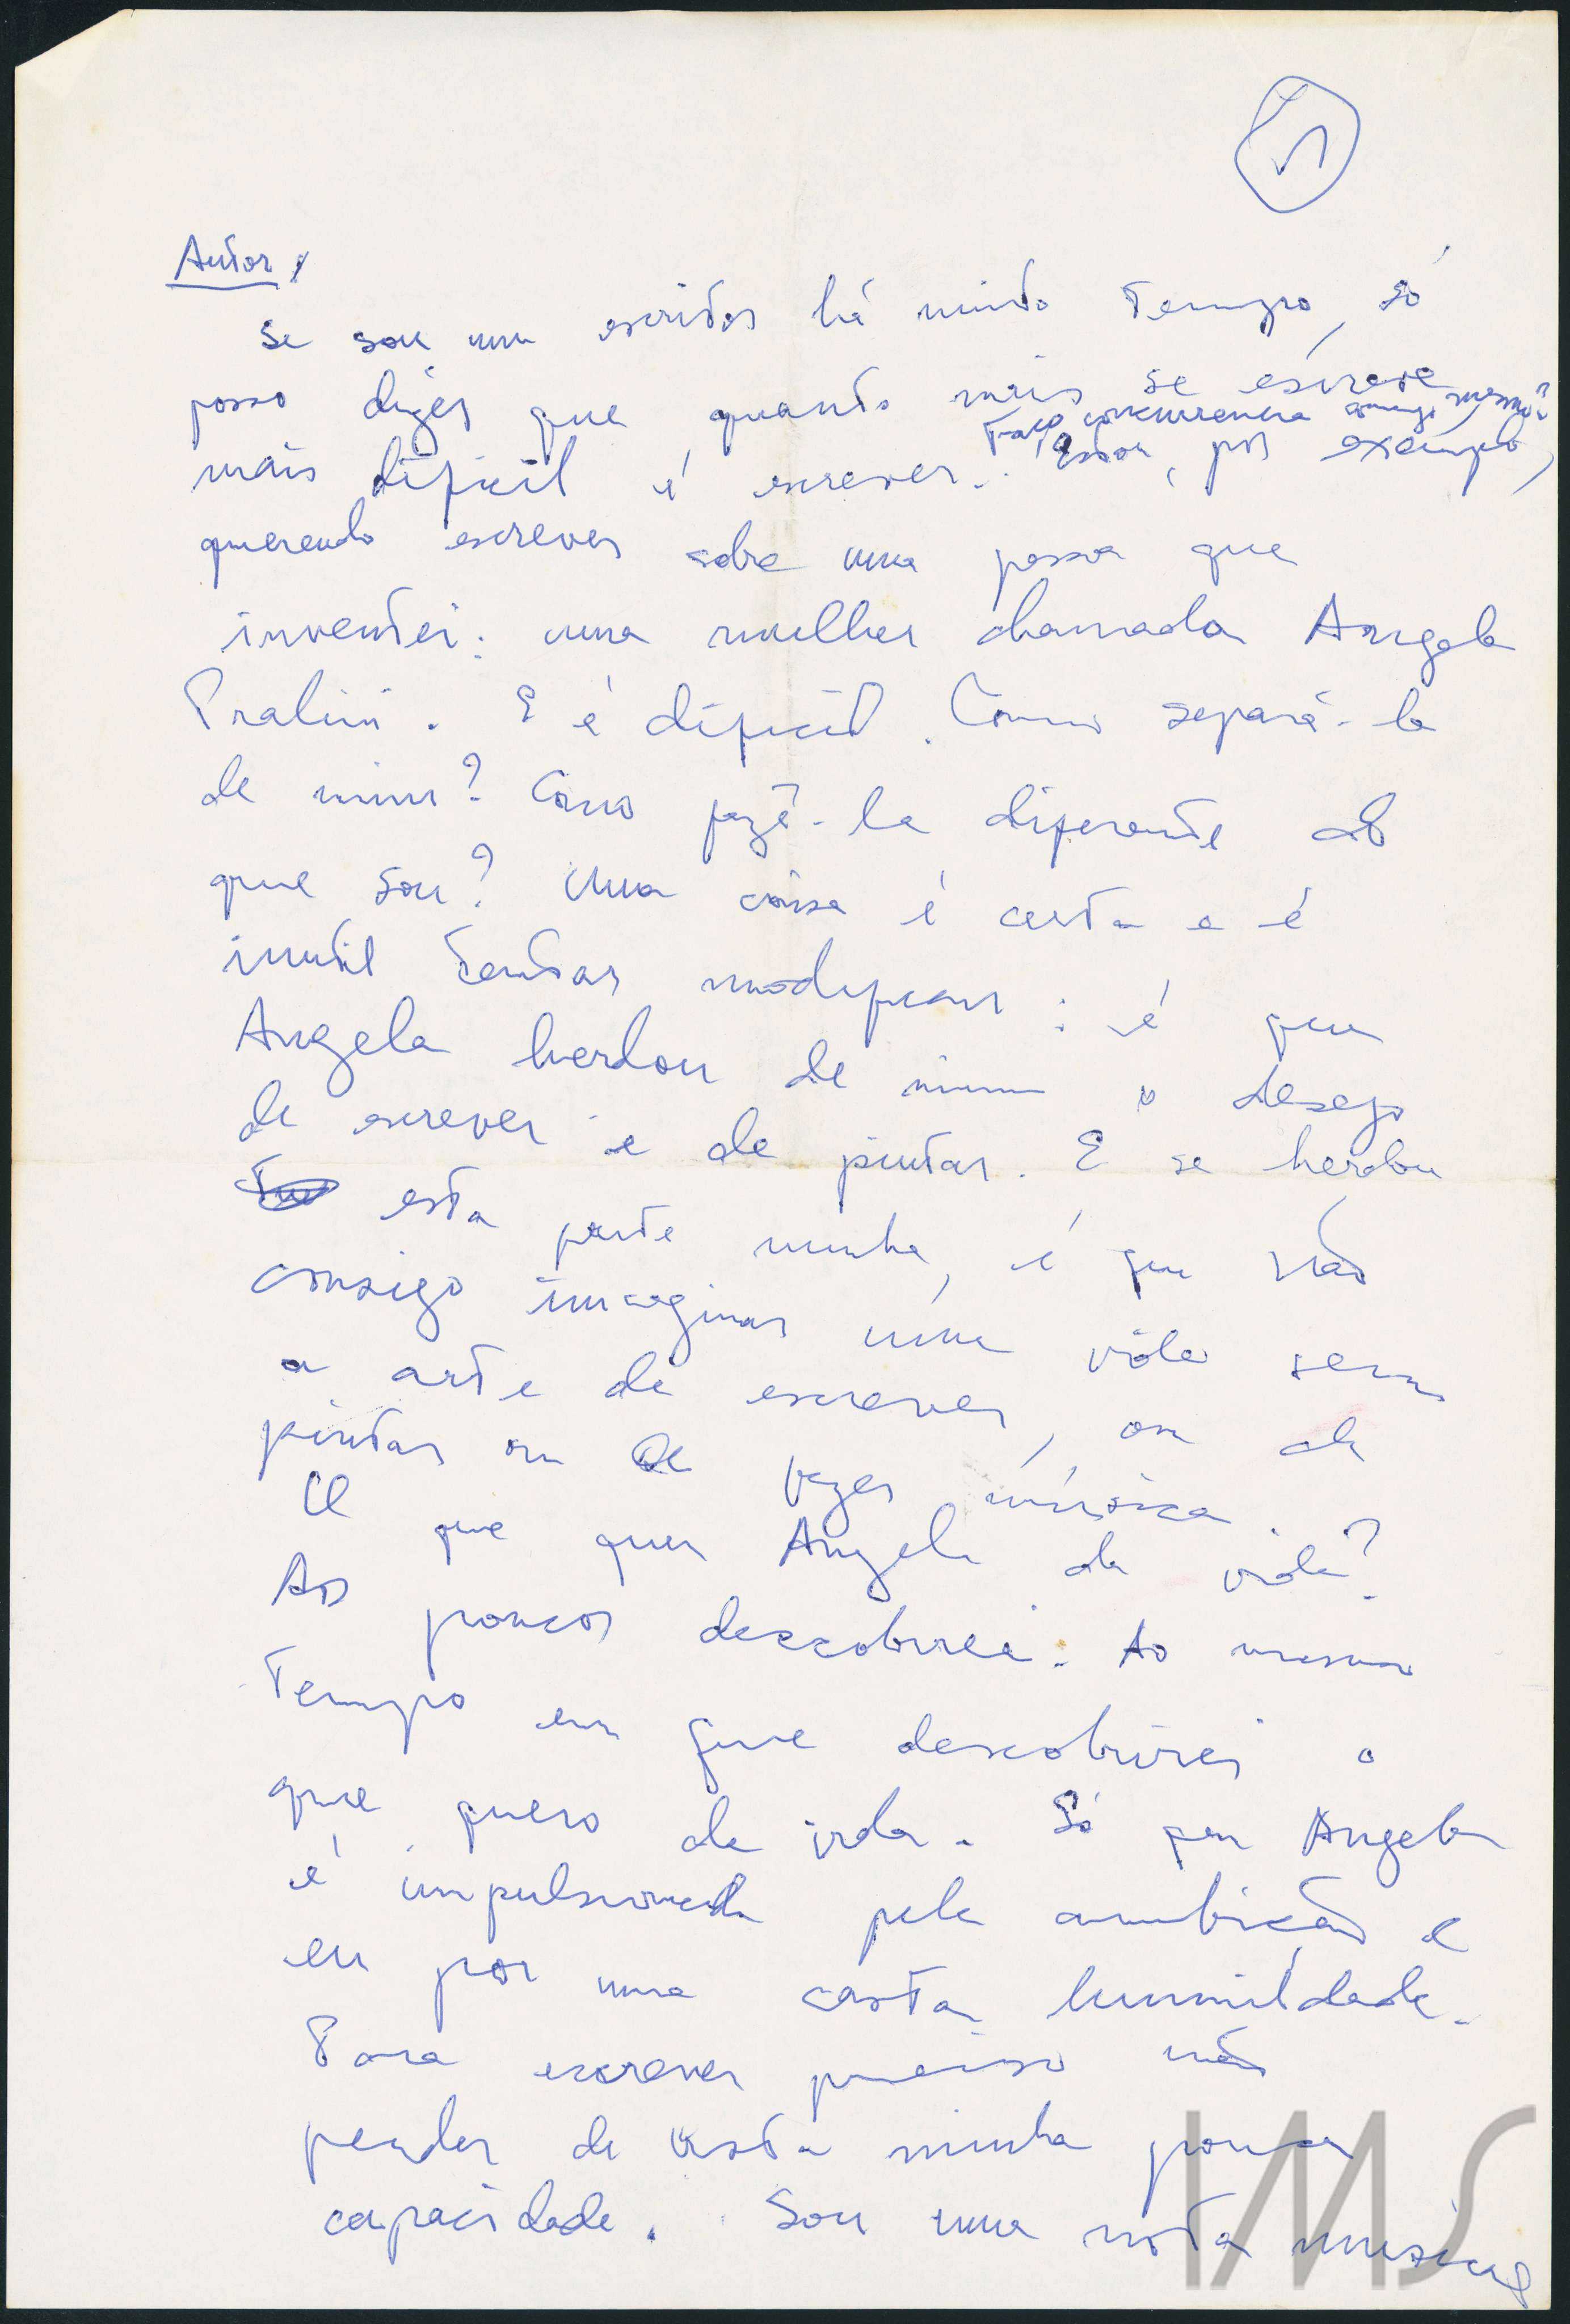 5
Autor:
Se sou um escritor há muito tempo, só
posso dizer que quanto mais se escreve
Faço concurrencia comigo mesmo?
mais difícil é escrever. Estou, por exemplo,
querendo escrever sobre uma pessoa que
inventei: uma mulher chamada Angela
Pralini. E é difícil. Como separá-la
de mim? Como fazê-la diferente do
que sou? Uma coisa é certa e é
inutil tentar modificar: é que
Angela herdou de mim o desejo
de escrever e de pintar. E se herdou
esta parte minha, é que não
consigo imaginar uma vida sem
a arte de escrever, ou de
pintar ou de fazer música.
O que quer Angela da vida?
Aos poucos descobrirei. Ao mesmo
tempo em que descobrirei o
que quero da vida. Só que Angela
é impulsionada pela ambição e
eu por uma casta humildade.
Para escrever preciso não
perder de vista minha pouca
capacidade. Sou uma nota musical
IMS